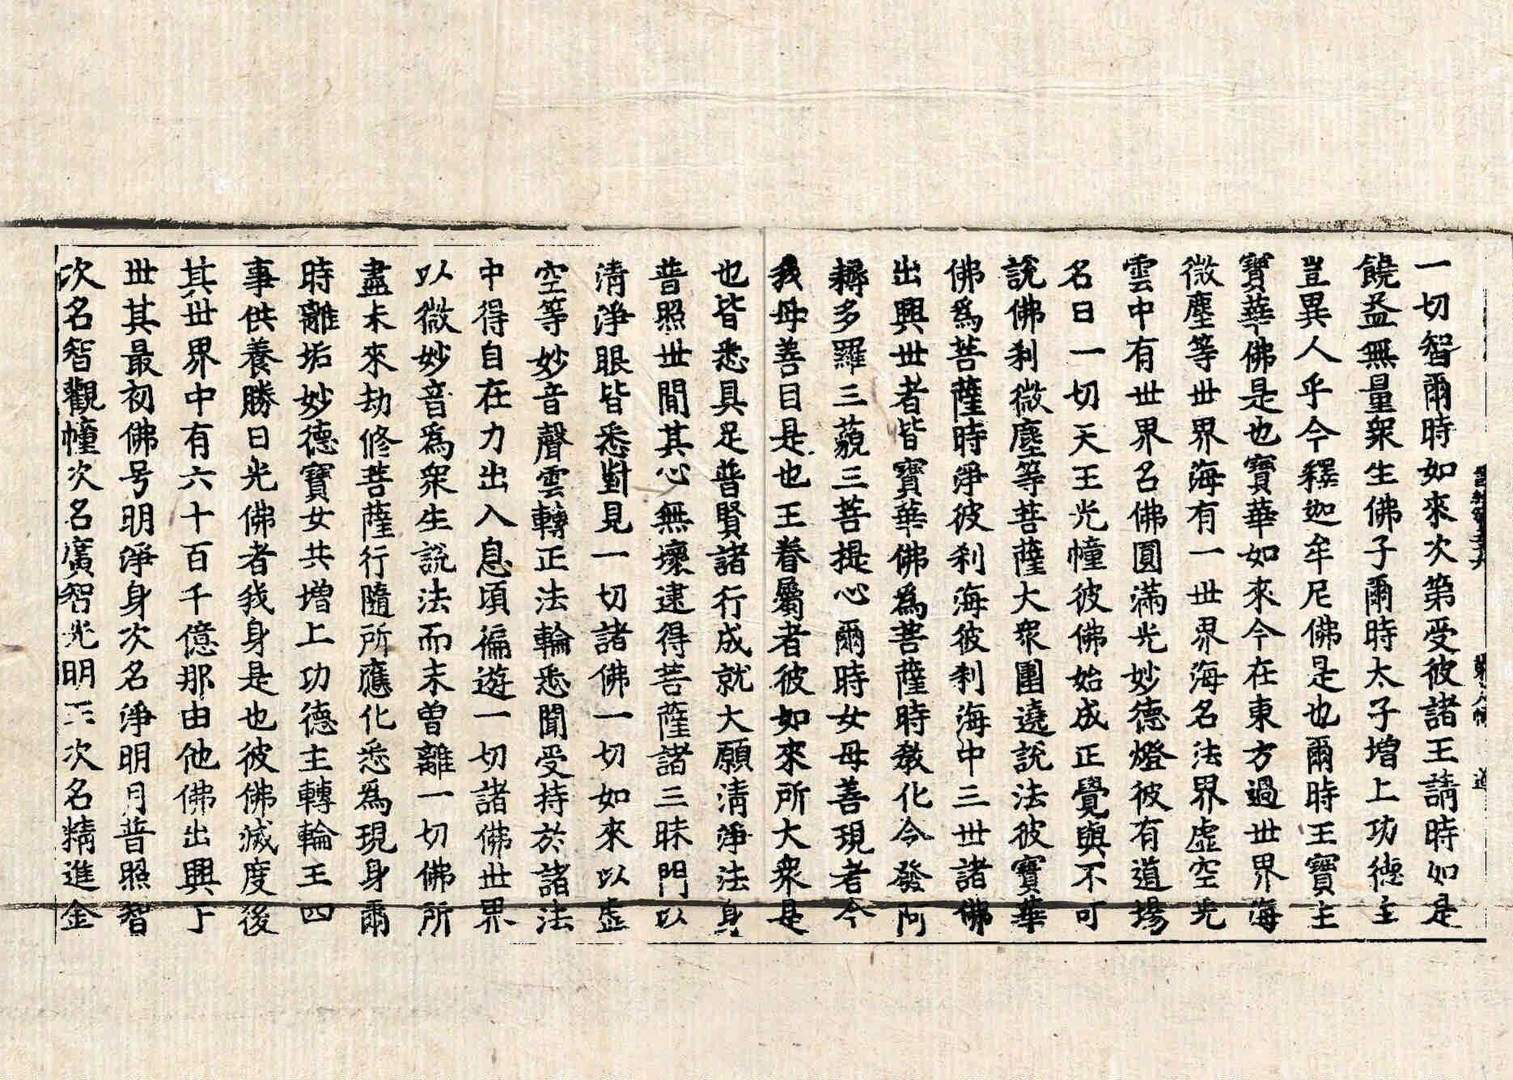 一切智爾時如來次第受彼諸王請時如是
饒益無量衆生佛子爾時太子增上功德主
豈異人乎今釋迦牟尼佛是也爾時王寶主
寶華佛是也寶華如來今在東方過世界海
微塵等世界海有一世界海名法界虛空光
雲中有世界名佛圓滿光妙德燈彼有道場
名曰一切天王光幢彼佛始成正覺與不可
說佛刹微塵等菩薩大衆圍遶說法彼寶華
佛爲菩薩時淨彼刹海彼刹海中三世諸佛
出興世者皆寶華佛爲菩薩時教化令發阿
耨多羅三藐三菩提心爾時女母善現者今
我母善目是也王眷屬者彼如來所大衆是
也皆悉具足普賢諸行成就大願淸淨法身
普照世間其心無壞逮得菩薩諸三昧門以
淸淨眼皆悉對見一切諸佛一切如來以虛
空等妙音聲雲轉正法輪悉聞受持於諸法
中得自在力出入息頃徧遊一切諸佛世界
以微妙音爲衆生說法而未曾離一切佛所
盡未來劫修菩薩行隨所應化悉爲現身爾
時離垢妙德寶女共增上功德主轉輪王四
事供養勝日光佛者我身是也彼佛滅度後
其世界中有六十百千億那由他佛出興于
世其最初佛号明淨身次名淨明月普照智
次名智觀幢次名廣智光明王次名精進金